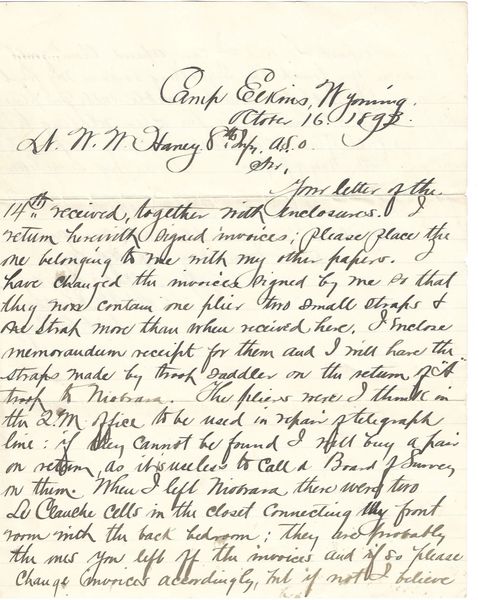 Camp Elkins, Wyoming.
October 16. 1893.
Lt. W. W. Haney 8th Infy. A.S.O.
Sir,
Your letter of the
14th received, together with enclosures. I
return herewith signed invoices; please place the
one belonging to me with my other papers. I
have changed the invoices signed by me so that
they now contain one plier two small straps &
one strap more than when received here. I enclose
memorandum receipt for them and I will have the
straps made by troop saddler on the return of "A"
troop to Niobrara. The pliers were I think in
the Q.M. office to be used in repair of telegraph
line: if they cannot be found I will buy a pair
on return, as it is useless to call a Board of Survey
on them. When I left Niobrara there were two
Le Clanche cells in the closet connecting the front
room with the back bedroom; they are probably
the ones you left off the invoices and if so please
change invoices accordingly, but if not I believe